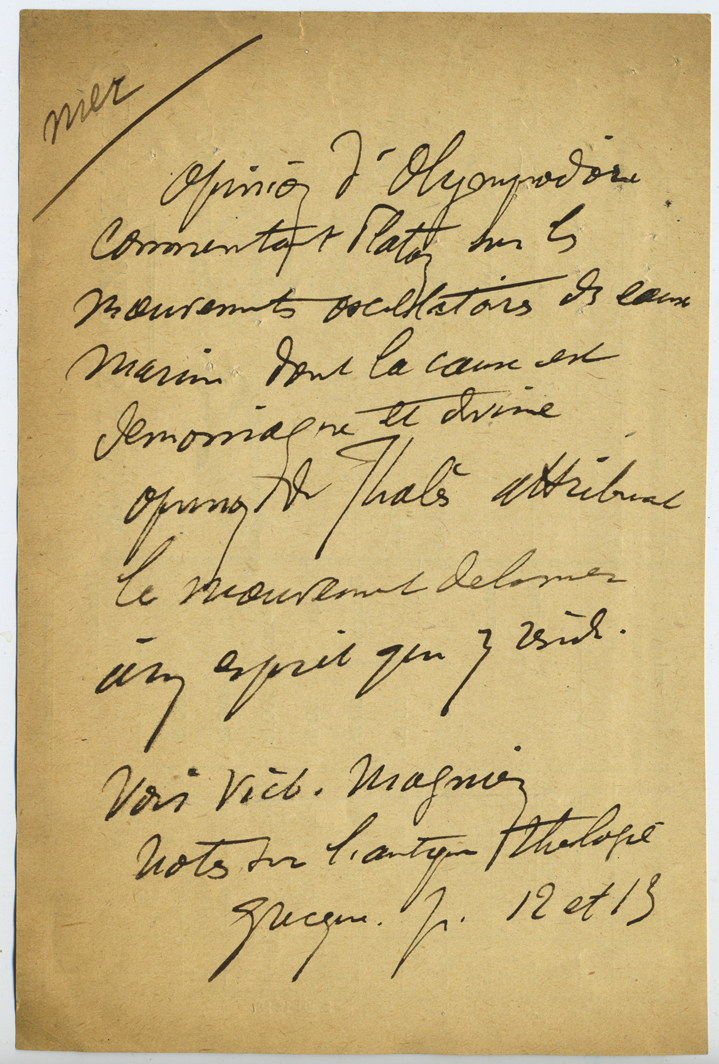 mer
Opinion d'Olympodore
commentant Platon sur les
mouvements oscillatoires des eaux
marines dont la cause est
demoniaque et divine
opinion de Thalès attribuant
le mouvement de la mer
à un esprit qui y réside.
Voir Vict. Magnien
Notes sur l'antique théologie
grecque. p. 12 et 13